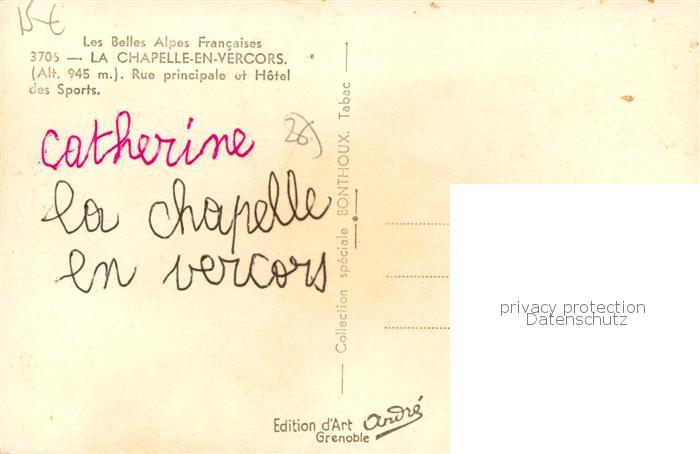 15 €
Les Belles Alpes Françaises
3706 — LA CHAPELLE-EN-VERCORS.
(Alt. 945 m.). Rue principale et Hôtel
des Sports.
catherine
la chapelle
en vercors
Collection spéciale BONTHOUX. Tabac
privacy protection
Datenschutz
Edition d'Art André
Grenoble